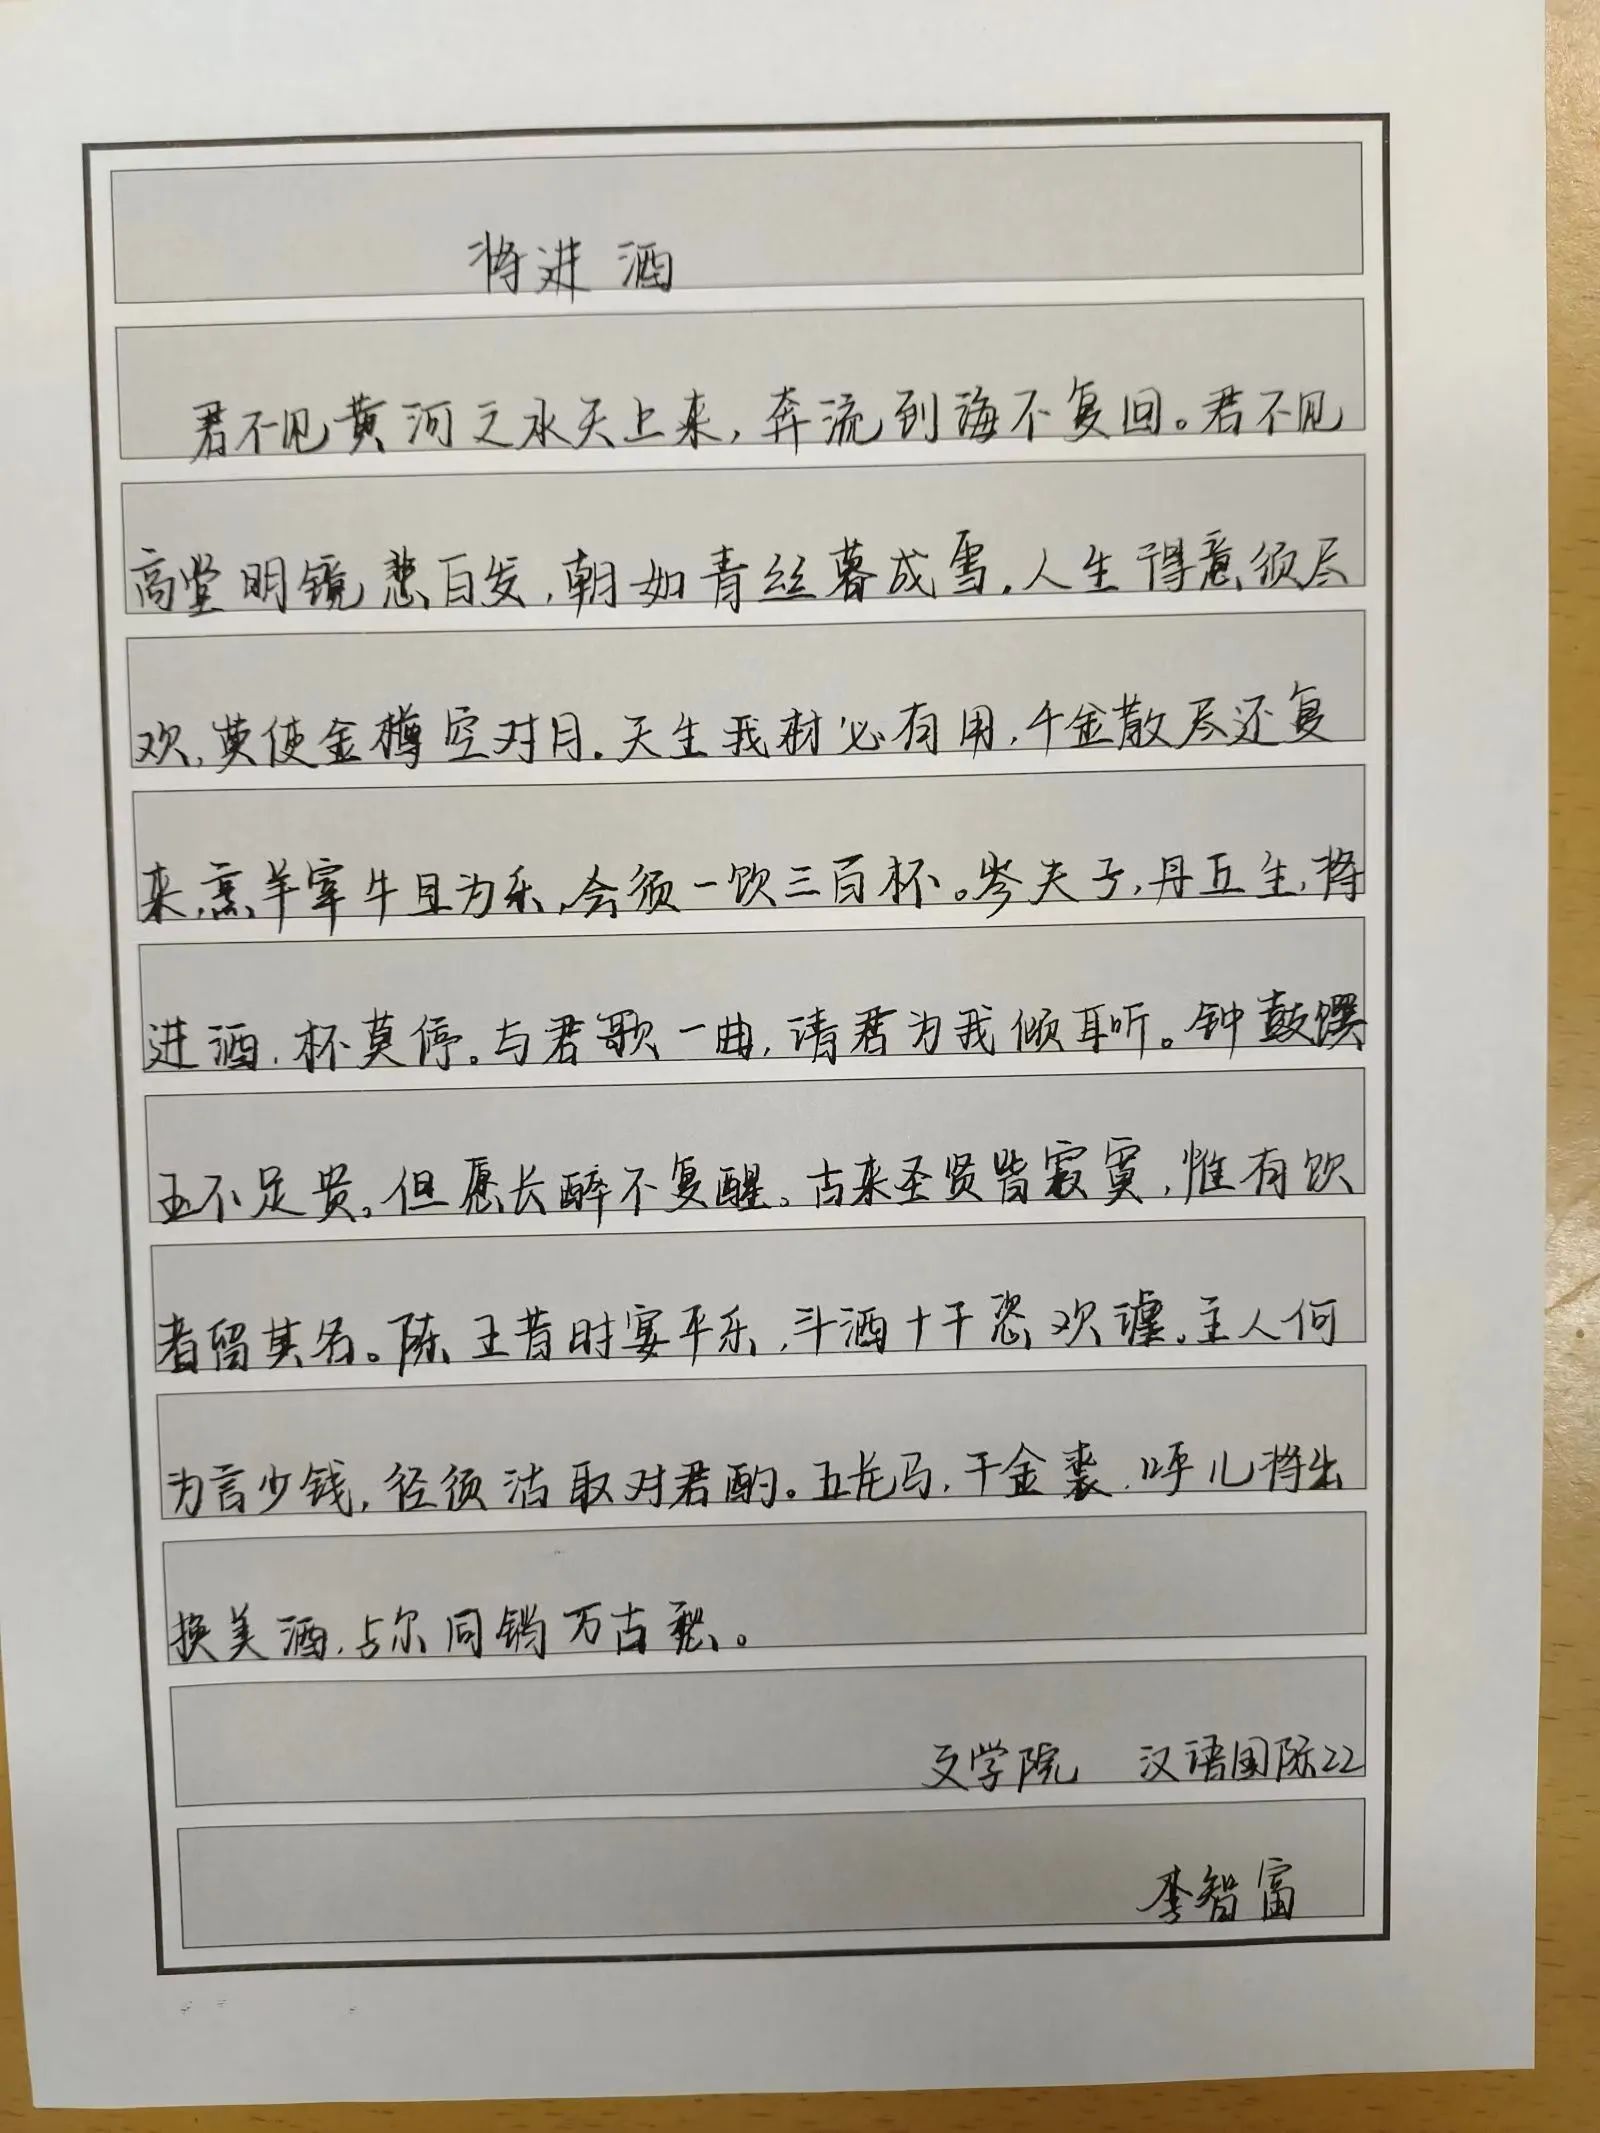 将进酒
君不见黄河之水天上来，奔流到海不复回。君不见
高堂明镜悲白发，朝如青丝暮成雪。人生得意须尽
欢，莫使金樽空对月。天生我材必有用，千金散尽还复
来，烹羊宰牛且为乐，会须一饮三百杯。岑夫子，丹丘生，将
进酒，杯莫停。与君歌一曲，请君为我倾耳听。钟鼓馔
玉不足贵。但愿长醉不复醒。古来圣贤皆寂寞，惟有饮
者留其名。陈王昔时宴平乐，斗酒十千恣欢谑。主人何
为言少钱，径须沽取对君酌。五花马，千金裘，呼儿将出
换美酒，与尔同销万古愁。
文学院 汉语国际22
李智富